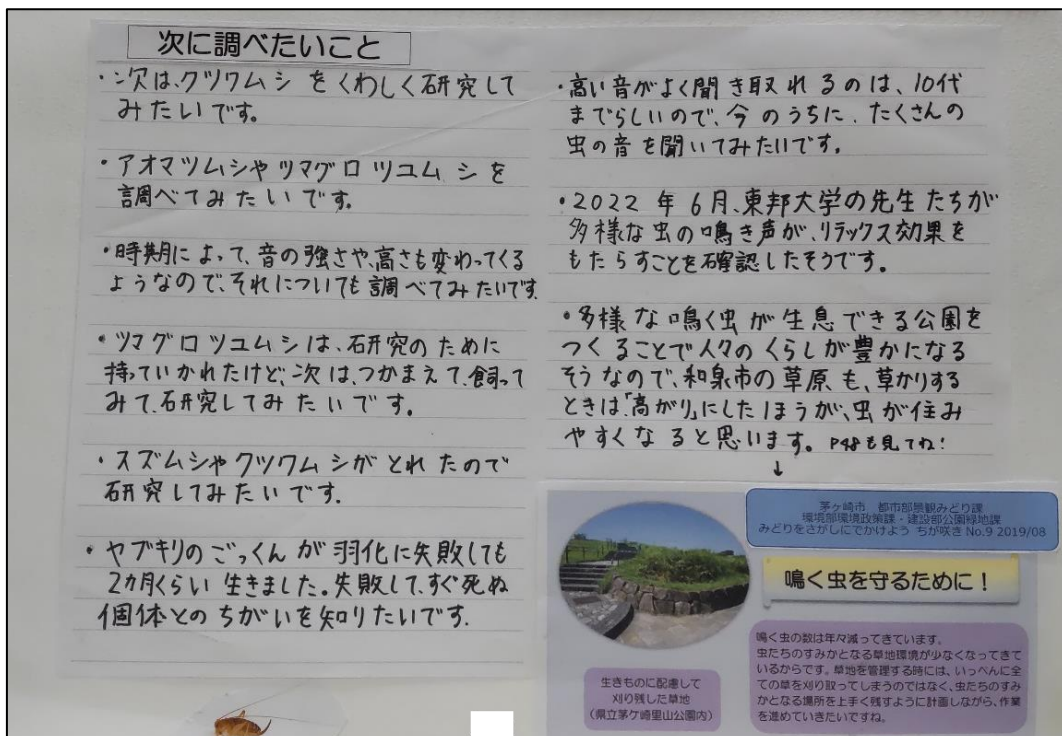 次に調べたいこと
・次は、クツワムシをくわしく研究して
みたいです。
・アオマツムシやツマグロツユムシを
調べてみたいです。
・時期によって、音の強さや、高さも変わってくる
ようなので、それについても調べてみたいです
・ツマグロツユムシは、研究のために
持っていかれたけど、次は、つかまえて、飼って
みて、研究してみたいです。
・スズムシやクツワムシがとれたので
研究してみたいです。
・ヤブキリのごっくんが羽化に失敗しても
2カ月くらい生きました。失敗して、すぐ死ぬ
個体とのちがいを知りたいです。
・高い音がよく聞き取れるのは、10代
までらしいので、今のうちに、たくさんの
虫の音を聞いてみたいです。
・2022年6月、東邦大学の先生たちが
多様な虫の鳴き声が、リラックス効果を
もたらすことを確認したそうです。
・多様な鳴く虫が生息できる公園を
つくることで人々のくらしが豊かになる
そうなので、和泉市の草原も、草かりする
ときは「高がり」にしたほうが、虫が住み
やすくなると思います。P48も見てね!
↓
茅ヶ崎市 都市部景観みどり課
環境部環境政策課・建設部公園緑地課
みどりをさがしにでかけよう ちが咲き No.9 2019/08
鳴く虫を守るために!
生きものに配慮して
刈り残した草地
(県立茅ケ崎里山公園内)
鳴く虫の数は年々減ってきています。
虫たちのすみかとなる草地環境が少なくなってきて
いるからです。草地を管理する時には、いっぺんに全
ての草を刈り取ってしまうのではなく、虫たちのすみ
かとなる場所を上手く残すように計画しながら、作業
を進めていきたいですね。